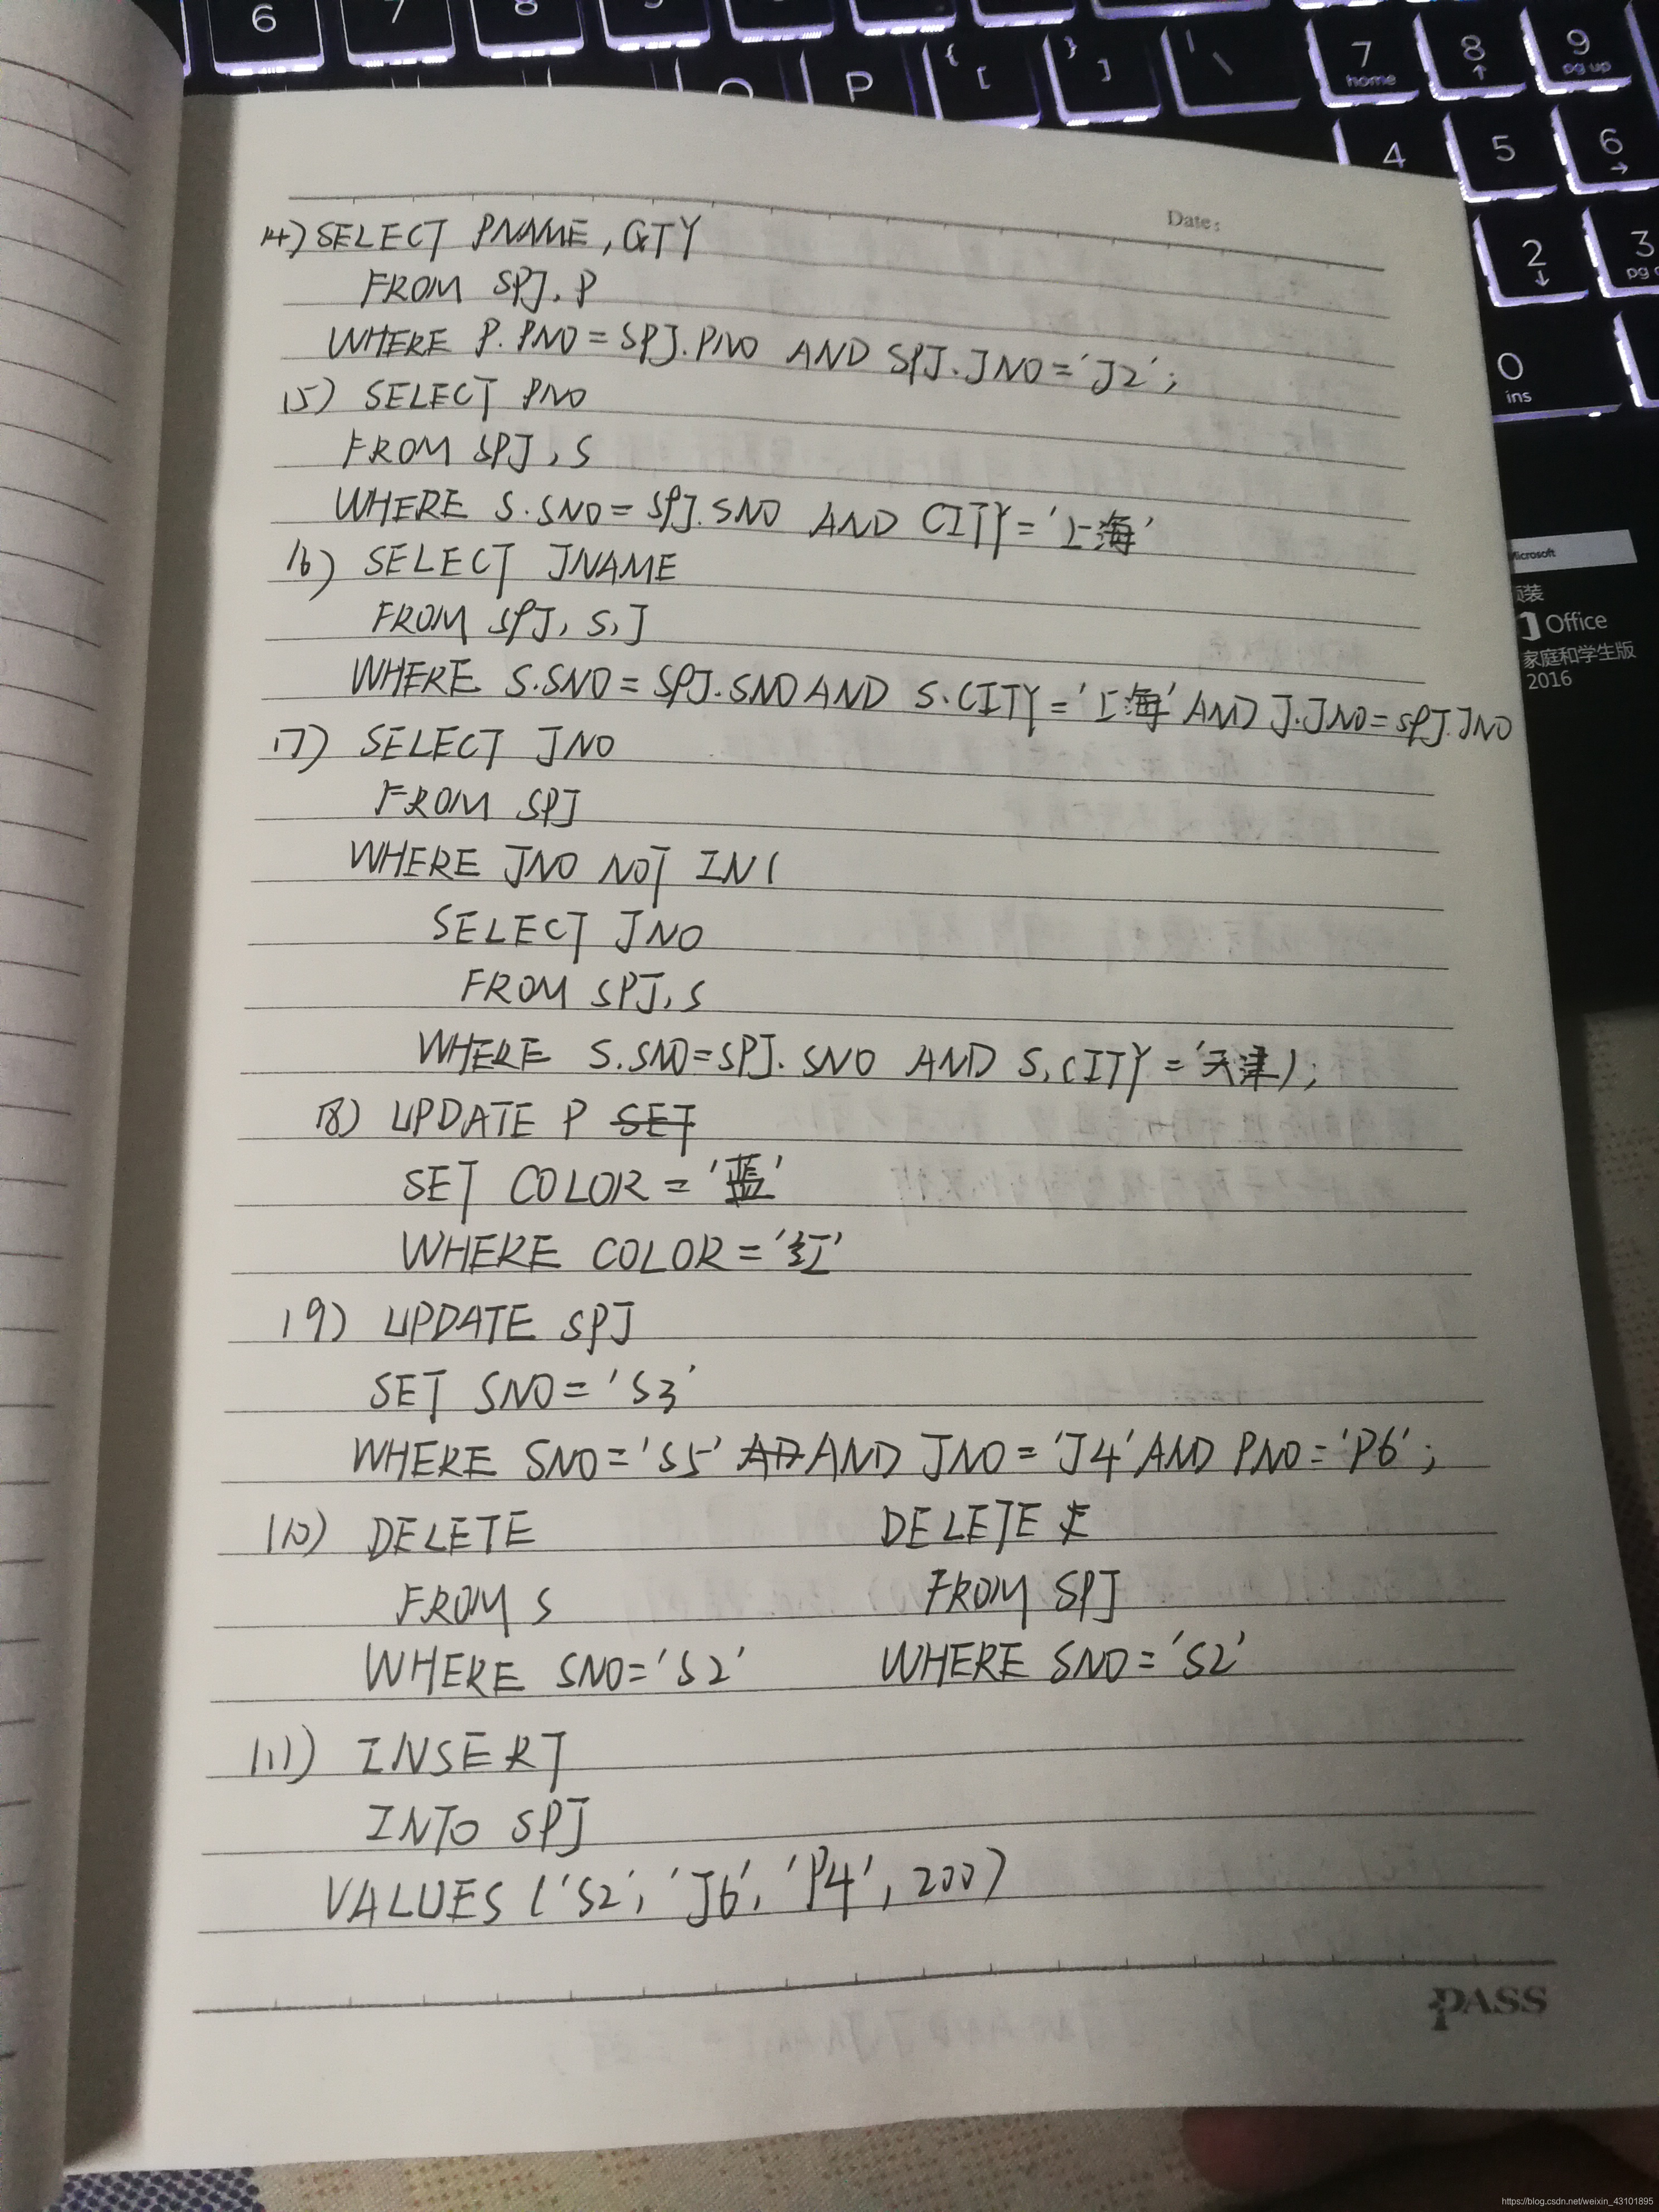 6 7 8
O P { [ } ] ' \ 7 home 8 ↑ 9 pg up
4 5 6 →
2 ↓ 3
0 ins
Microsoft
Office
家庭和学生版
2016
Date:
14) SELECT PNAME, QTY
FROM SPJ, P
WHERE P.PNO=SPJ.PNO AND SPJ.JNO='J2';
15) SELECT PNO
FROM SPJ, S
WHERE S.SNO=SPJ.SNO AND CITY='上海'
16) SELECT JNAME
FROM SPJ, S, J
WHERE S.SNO=SPJ.SNO AND S.CITY='上海' AND J.JNO=SPJ.JNO
17) SELECT JNO
FROM SPJ
WHERE JNO NOT IN(
SELECT JNO
FROM SPJ, S
WHERE S.SNO=SPJ.SNO AND S.CITY='天津);
18) UPDATE P SET
SET COLOR='蓝'
WHERE COLOR='红'
19) UPDATE SPJ
SET SNO='S3'
WHERE SNO='S5' AND JNO='J4' AND PNO='P6';
(10) DELETE
FROM S
WHERE SNO='S2'
DELETE
FROM SPJ
WHERE SNO='S2'
(11) INSERT
INTO SPJ
VALUES ('S2', 'J6', 'P4', 200)
PASS
https://blog.csdn.net/weixin_43101895